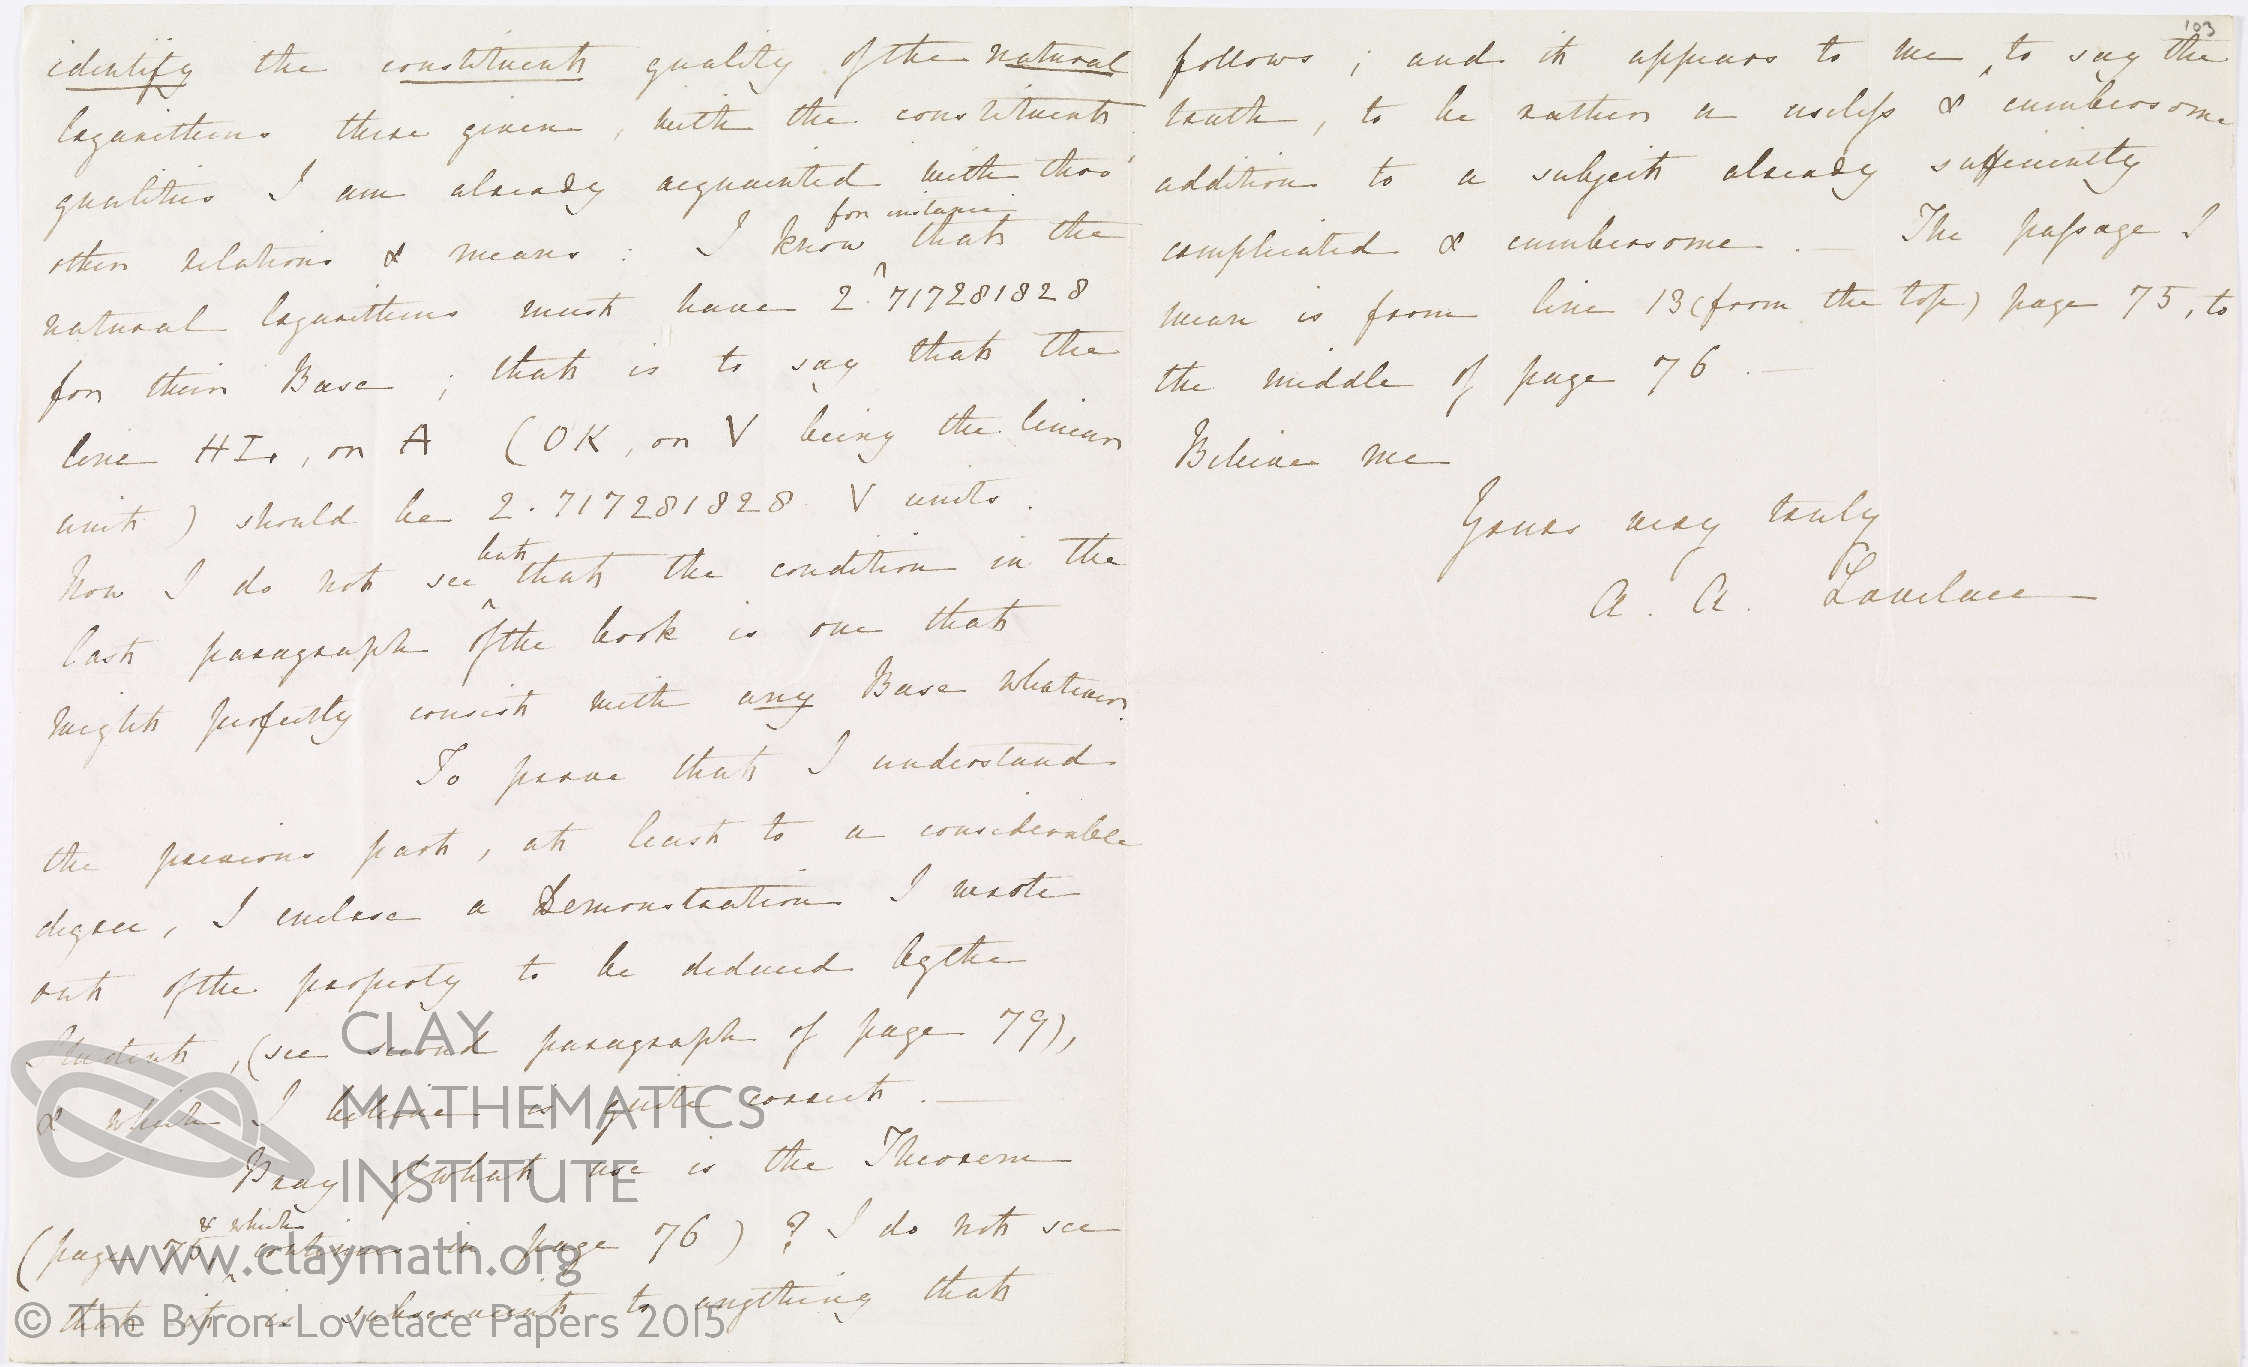 identify the constituent quality of the natural
logarithms there given, with the constituent
qualities I am already acquainted with thro'
other relations & means : I know for instance that the
natural logarithms must have 2.717281828
for their Base ; that is to say that the
line HL, or A (OK, or V being the linear
unit) should be 2.717281828 V units.
Now I do not see but that the condition in the
last paragraph of the book is one that
might perfectly consist with any Base whatever.
To prove that I understand
the previous part, at least to a considerable
degree, I enclose a Demonstration I wrote
out of the property to be deduced by the
Student, (see second paragraph of page 79),
& which I believe is quite correct. —
Pray of what use is the Theorem
(page 75, & which continues in page 76) ? I do not see
that it is subservient to anything that
103
follows ; and it appears to me, to say the
truth, to be rather a useless & cumbersome
addition to a subject already sufficiently
complicated & cumbersome. — The passage I
mean is from line 13 (from the top) page 75, to
the middle of page 76. —
Believe me
Yours very truly
A. A. Lovelace
CLAY
MATHEMATICS
INSTITUTE
www.claymath.org
© The Byron-Lovelace Papers 2015